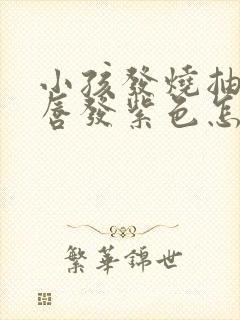 小孩發燒抽
唇發紫色怎
繁華錦世